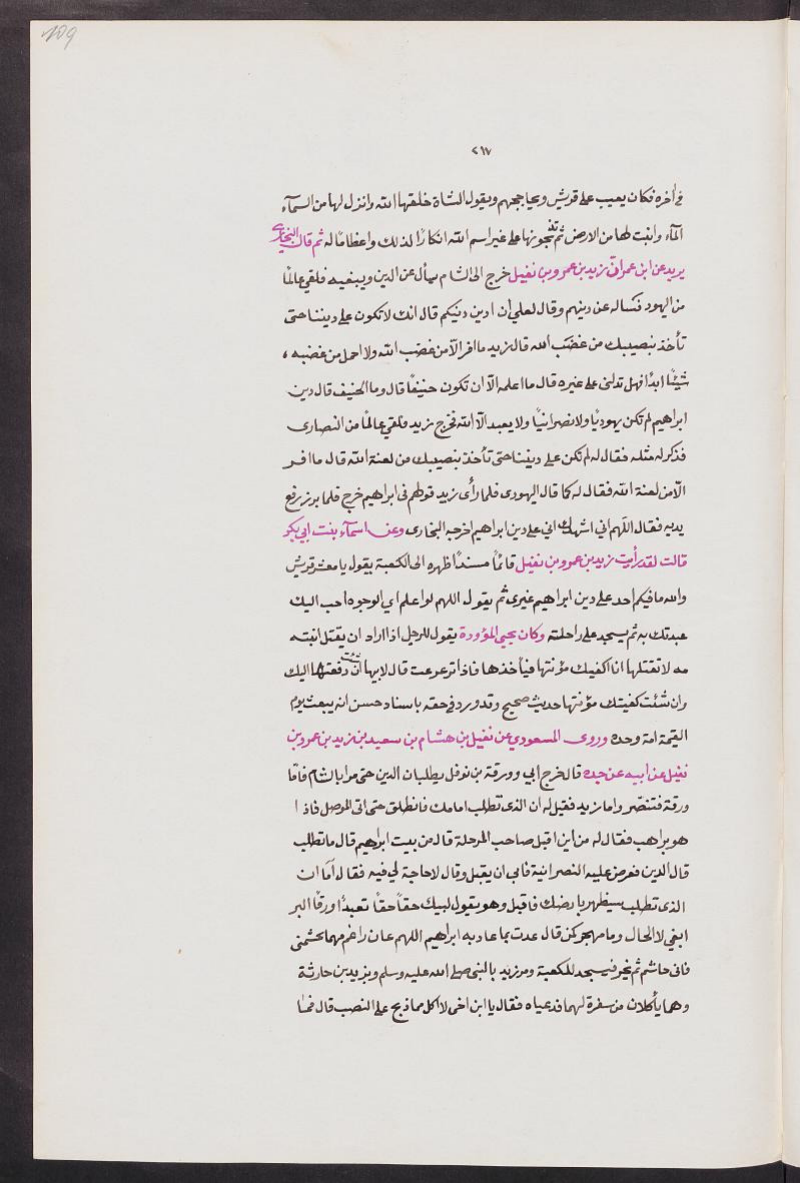 109
٢٦٧
في أخره فكان يعيب على قريش ويحاججهم ويقول الشاة خلقها الله وانزل لها من السمآء
المآء وانبت لها من الارض ثم تذبحونها على غير اسم الله انكارًا لذلك واعظامًا له ثم قال البخاري
يريد عن ابن عمر ان زيد بن عمرو بن نفيل خرج الى الشام يسأل عن الدين ويبتغيه فلقي عالمًا
من اليهود فساله عن دينهم وقال لعلي ان ادين دينكم قال انك لا تكون على ديننا حتى
تأخذ بنصيبك من غضب الله قال زيد ما افر الا من غضب الله ولا احمل من غضبه ،
شيئًا ابدًا فهل تدلني على غيره قال ما اعلمه الا ان تكون حنيفًا قال وما الحنيف قال دين
ابراهيم لم تكن يهوديًا ولا نصرانيًا ولا يعبد الا الله فخرج زيد فلقي عالمًا من النصارى
فذكر له مثله فقال له لم تكن على ديننا حتى تأخذ بنصيبك من لعنة الله قال ما افر
الا من لعنة الله فقال له كما قال اليهودى فلما رأى زيد قولهم فى ابراهيم خرج فلما برز رفع
يديه فقال اللهم اني اشهدك اني على دين ابراهيم اخرجه البخارى وعن اسمآء بنت ابي بكر
قالت لقد رأيت زيد بن عمرو بن نفيل قائمًا مسندًا ظهره الى الكعبة يقول يا معشر قريش
والله ما فيكم احد على دين ابراهيم غيرى ثم يقول اللهم لو اعلم اي الوجوه احب اليك
عبدتك به ثم يسجد على راحلته وكان يحي المؤودة يقول للرجل اذا اراد ان يقتل ابنته
مه لا تقتلها انا اكفيك مؤنتها فيأخذها فاذا ترعرعت قال لابيها ان شئت دفعتها اليك
وان شئت كفيتك مؤنتها حديث صحيح وقد ورد في حقه باسناد حسن انه يبعث يوم
القيمة امة وحده وروى المسعودي عن نفيل بن هشام بن سعيد بن زيد بن عمرو بن
نفيل عن ابيه عن جده قال خرج ابي وورقة بن نوفل يطلبان الدين حتى مرا بالشام فاما
ورقة فتنصّر واما زيد فقيل له ان الذى تطلب امامك فانطلق حتى اتى الموصل فاذا
هو براهب فقال له من اين اقبل صاحب المرحلة قال من بيت ابراهيم قال ما تطلب
قال الدين فعرض عليه النصرانية فابى ان يقبل وقال لا حاجة لي فيه فقال اما ان
الذى تطلب سيظهر بارضك فاقبل وهو يقول لبيك حقًا حقًا تعبدًا ورقًا البر
ابغي لا الحال وما مهجر كمن قال عدت بما عاد به ابراهيم اللهم عان راغم مهما تجشمنى
فانى جاشم ثم يخر فيسجد للكعبة ومر زيد بالنبى صلى الله عليه وسلم ويزيد بن حارثة
وهما يأكلان من سفرة لهما فدعياه فقال يا ابن اخى لا اكل مما ذبح على النصب قال فما